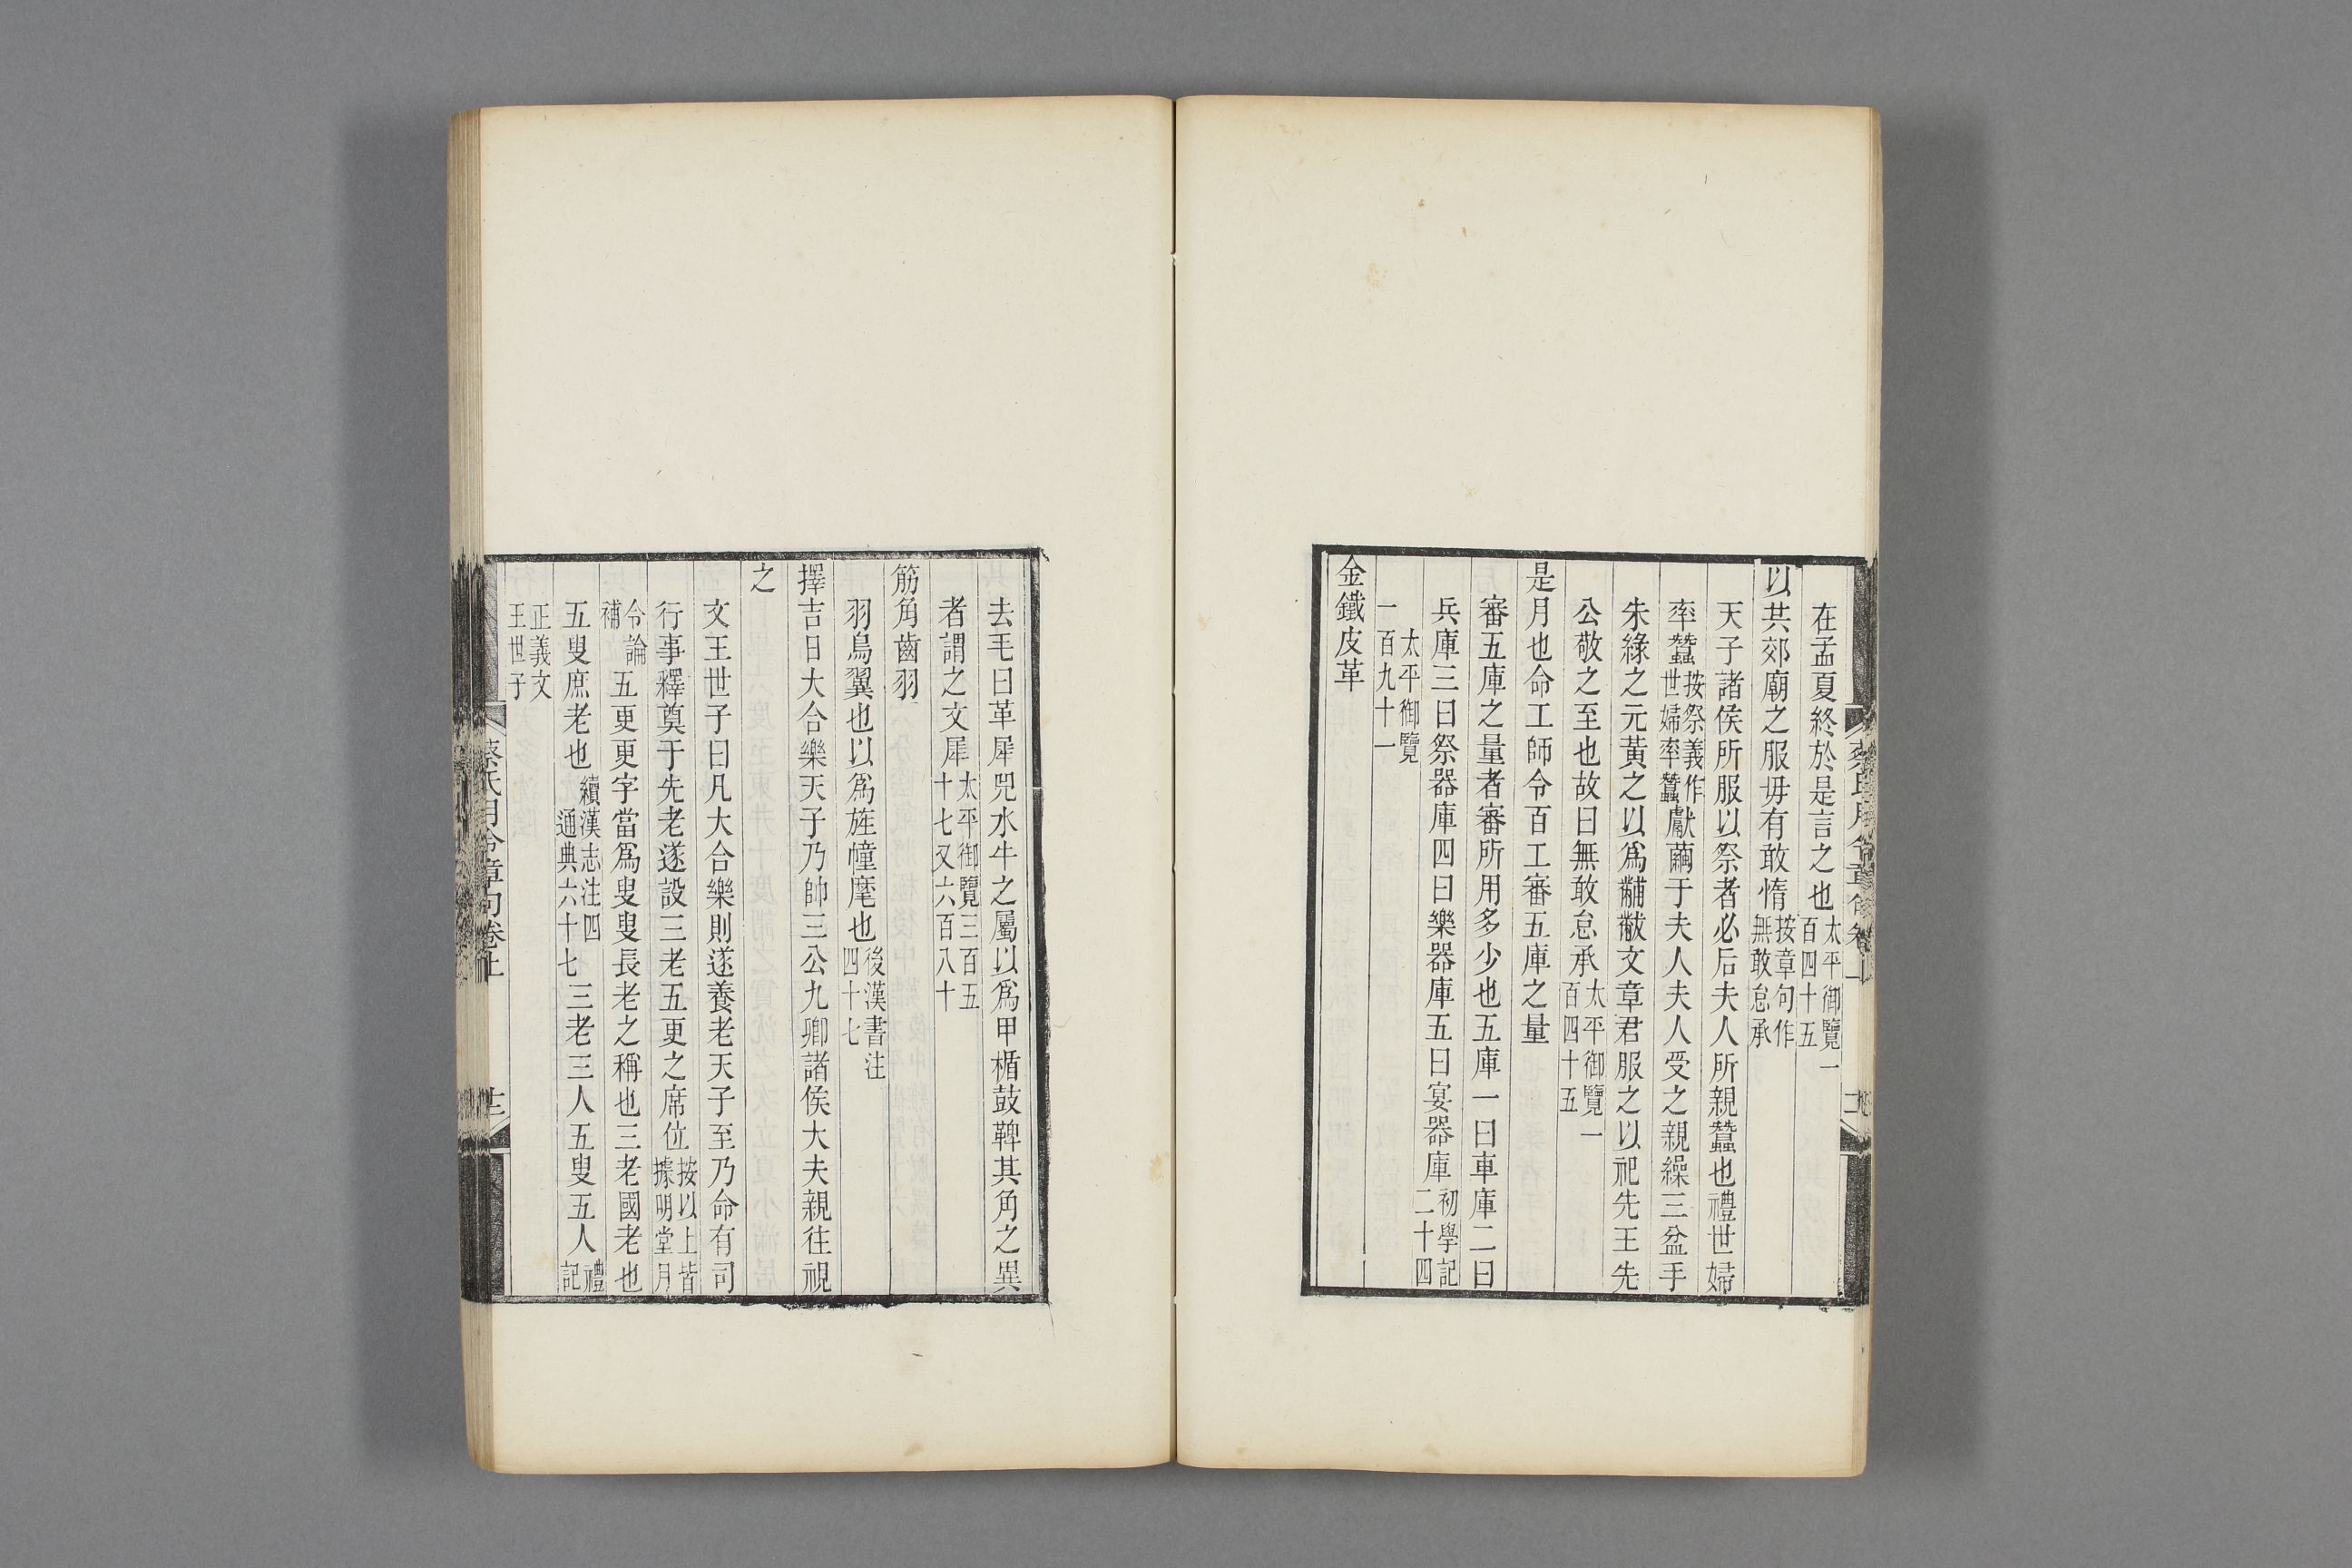 在孟夏終於是言之也太平御覽一百四十五
以共郊廟之服毋有敢惰按章句作無敢怠承
天子諸侯所服以祭者必后夫人所親蠶也禮世婦
率蠶按祭義作世婦率蠶獻繭于夫人夫人受之親繰三盆手
朱綠之元黃之以爲黼黻文章君服之以祀先王先
公敬之至也故曰無敢怠承太平御覽一百四十五
是月也命工師令百工審五庫之量
審五庫之量者審所用多少也五庫一曰車庫二曰
兵庫三曰祭器庫四曰樂器庫五曰宴器庫初學記二十四
太平御覽一百九十一
金鐵皮革
去毛曰革犀兕水牛之屬以爲甲楯鼓鞞其角之異
者謂之文犀太平御覽三百五十七又六百八十
筋角齒羽
羽鳥翼也以爲旌幢麾也後漢書注四十七
擇吉日大合樂天子乃帥三公九卿諸侯大夫親往視
之
文王世子曰凡大合樂則遂養老天子至乃命有司
行事釋奠于先老遂設三老五更之席位按以上皆據明堂月
令論補五更更字當爲叟叟長老之稱也三老國老也
五叟庶老也續漢志注四通典六十七三老三人五叟五人禮記
正義文王世子
蔡氏月令章句卷上